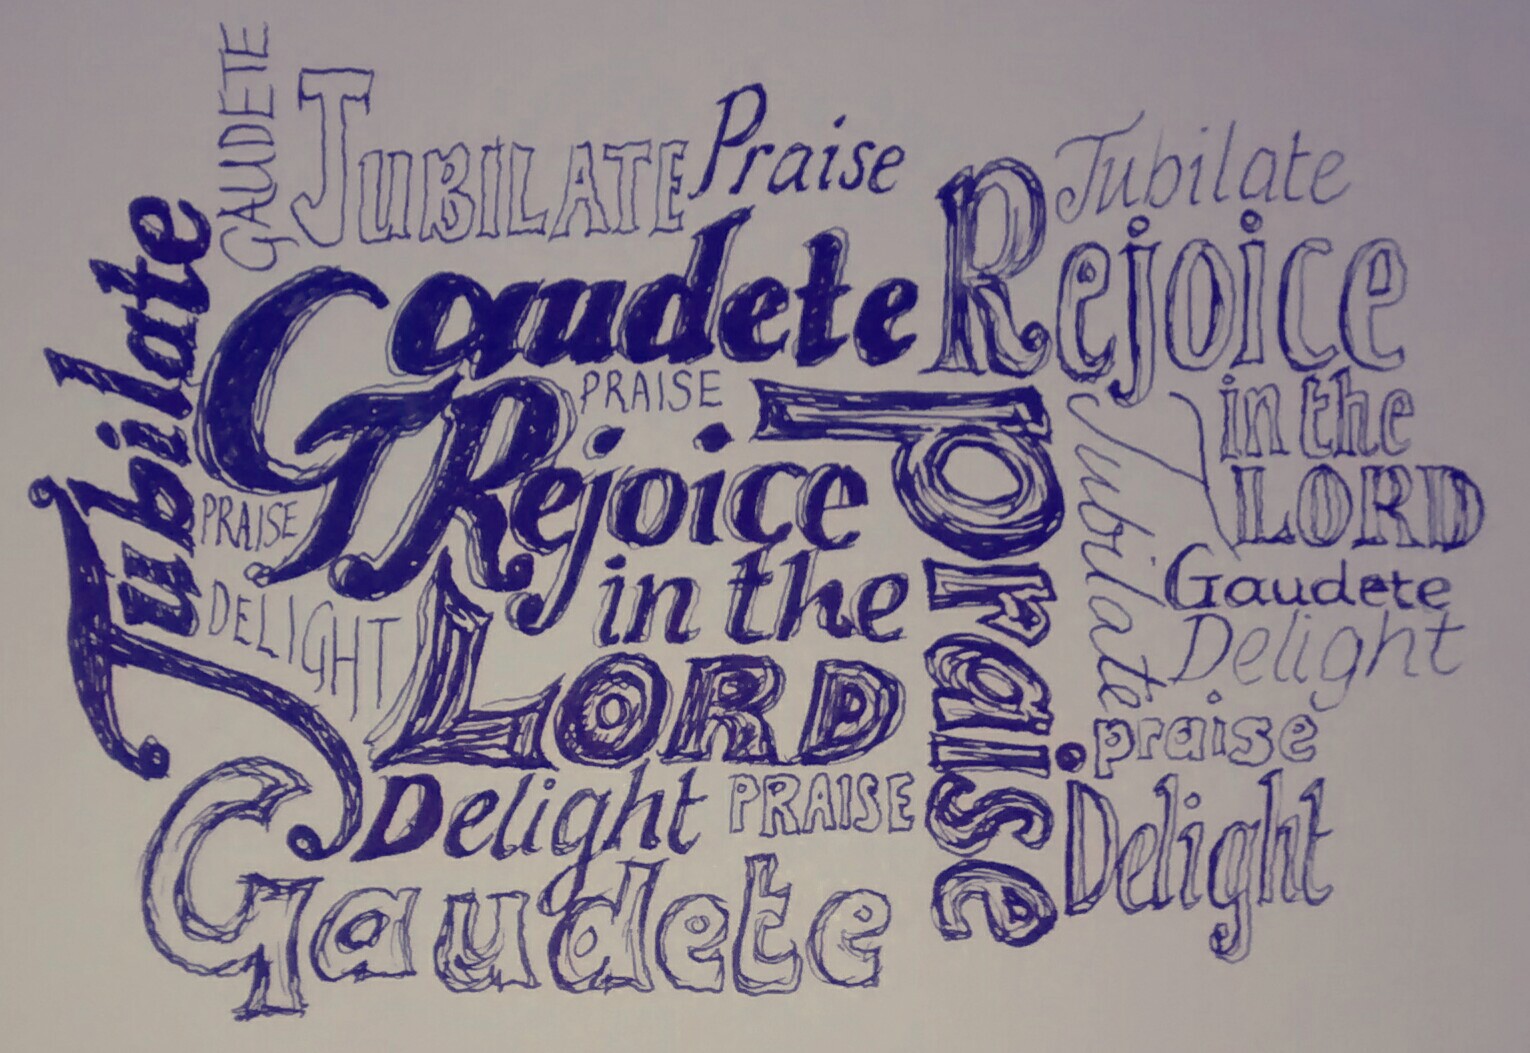 GAUDETE
JUBILATE
Praise
Jubilate
Jubilate
Gaudete
Rejoice
PRAISE
Rejoice
in the
LORD
Praise
in the
LORD
Jubilate
PRAISE
DELIGHT
Gaudete
Delight
praise
Delight
PRAISE
Delight
Gaudete